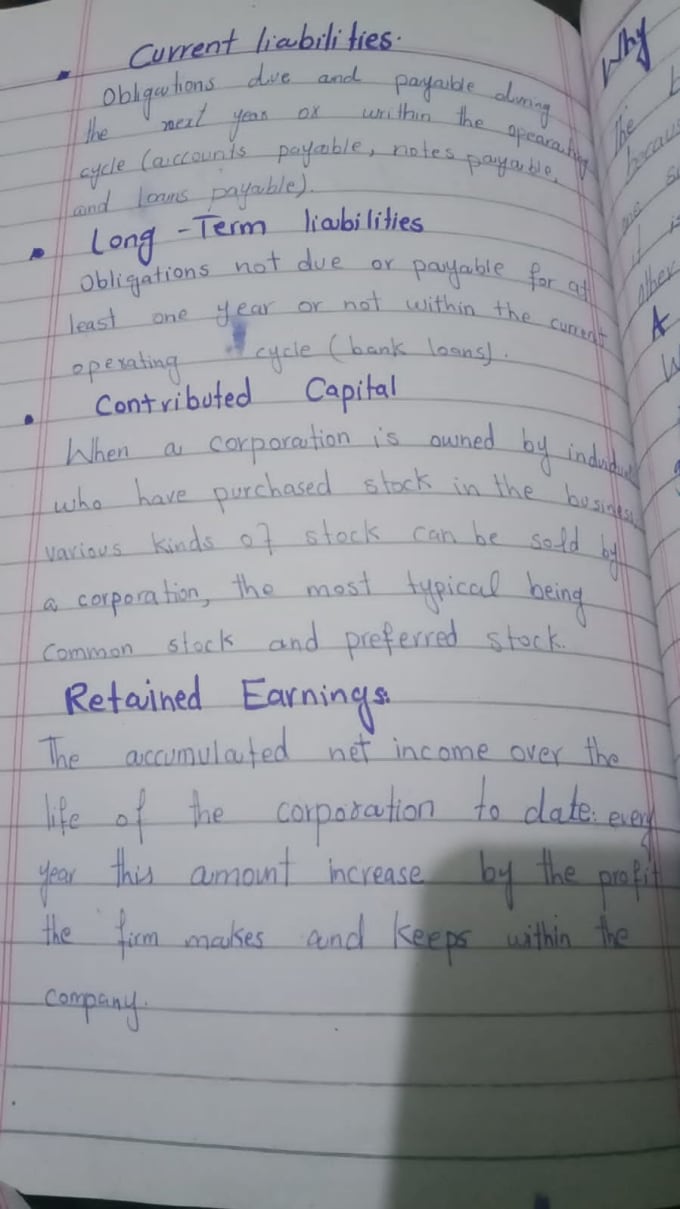 Current liabilities.
Obligations due and payable during
the next year or writhin the opearating
cycle (accounts payable, notes payable,
and loans payable).
Long-Term liabilities
Obligations not due or payable for at
least one year or not within the current
operating cycle (bank loans).
Contributed Capital
When a corporation is owned by individual
who have purchased stock in the business,
various kinds of stock can be sold by
a corporation, the most typical being
common stock and preferred stock.
Retained Earnings:
The accumulated net income over the
life of the corporation to date: every
year this amount increase by the profit
the firm makes and keeps within the
company.
Why
The
becaus
other
A